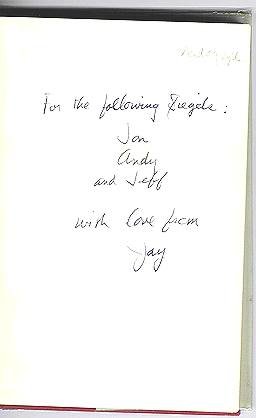 For the following Ziegele:
Jon
Andy
and Jeff
with love from
Jay